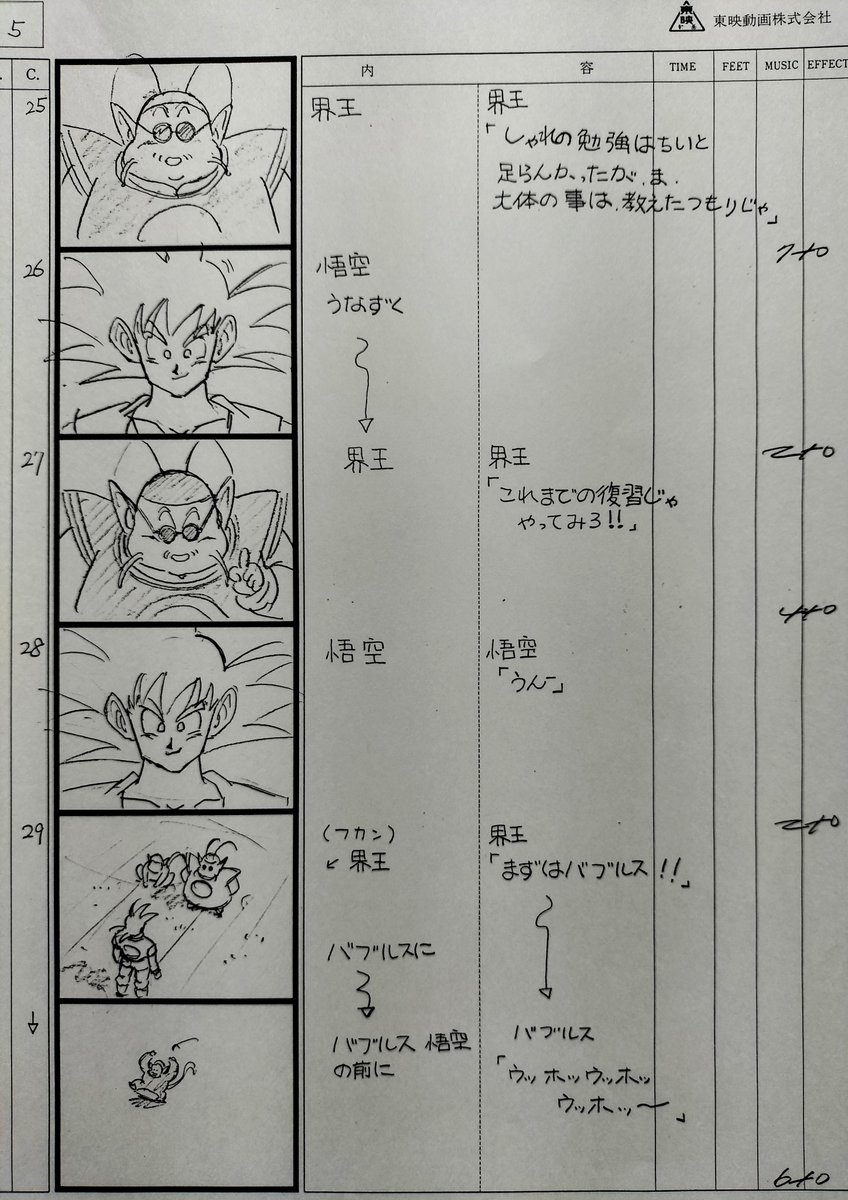 5
東映
東映動画株式会社
C. 内 容 TIME FEET MUSIC EFFECT
25 界王 界王
「しゃれの勉強はちいと
足らんかったが、ま、
大体の事は、教えたつもりじゃ」
7+0
26 悟空
うなずく
27 界王 界王
2+0
「これまでの復習じゃ
やってみろ!!」
4+0
28 悟空 悟空
「うんー」
2+0
29 (フカン) 界王
↙ 界王 「まずはバブルス!!」
バブルスに
バブルス
バブルス 悟空
の前に
「ウッホッウッホッ
ウッホッ〜」
6+0